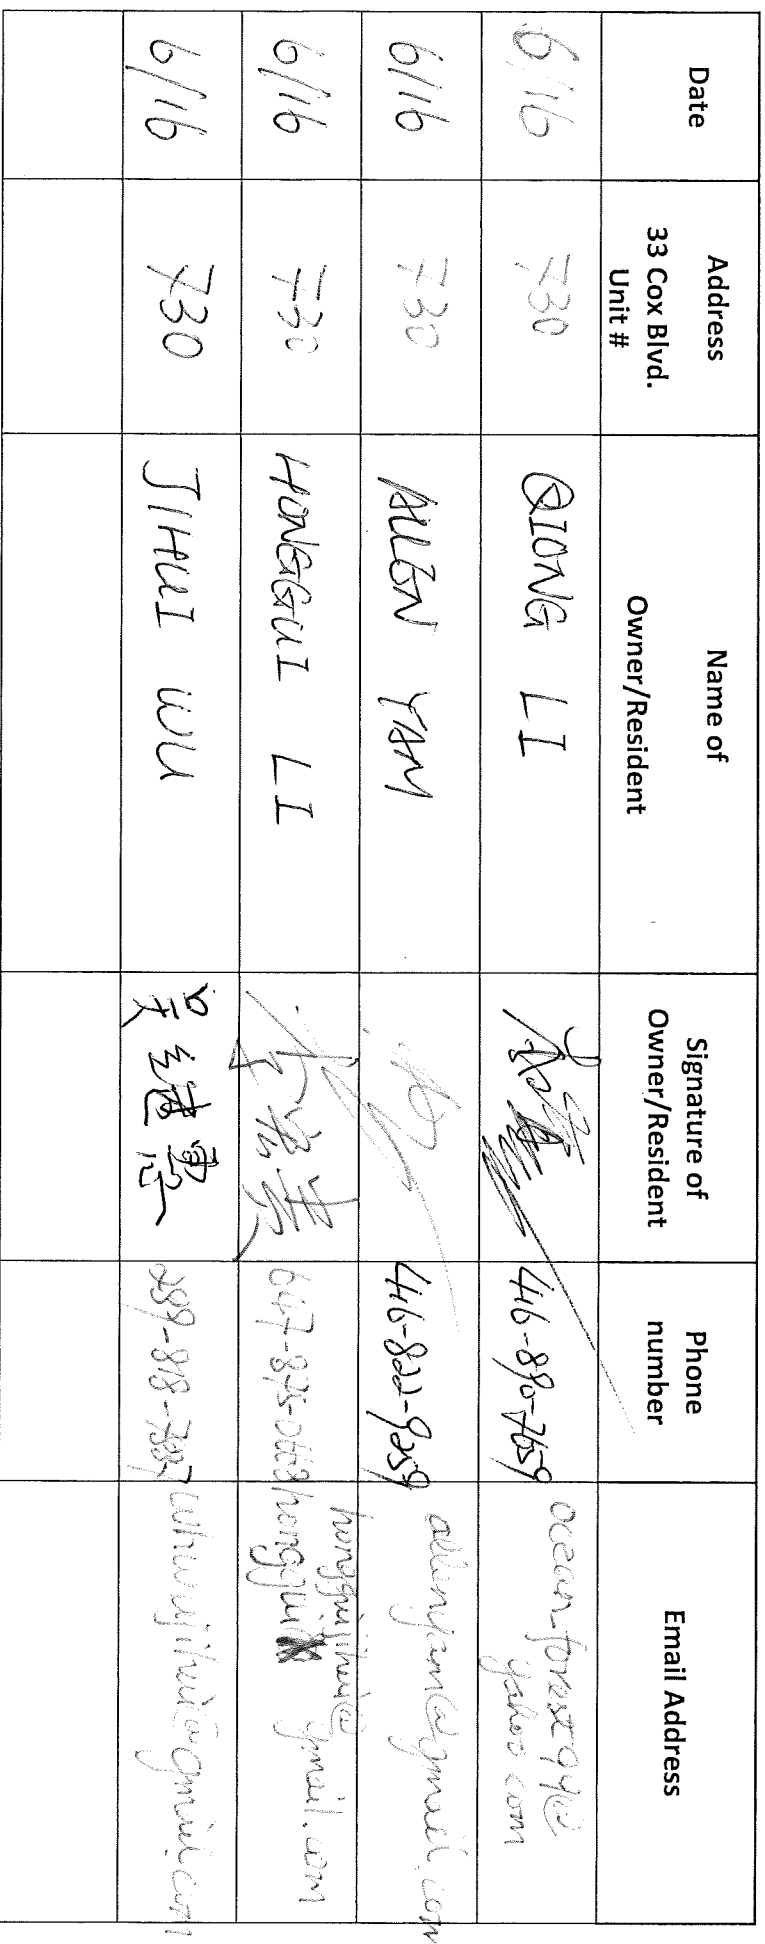 Date Address 33 Cox Blvd. Unit # Name of Owner/Resident Signature of Owner/Resident Phone number Email Address
6/16 730 QIONG LI 416-890-7659 ocean_forest99@yahoo.com
6/16 730 ALLEN YAM 416-822-9259 allenyam@ymail.com
6/16 730 HONGGUI LI 647-875- hongguijihui@gmail.com
6/16 730 JIHUI WU 吴继惠 289-818-7887 whwujihui@gmail.com